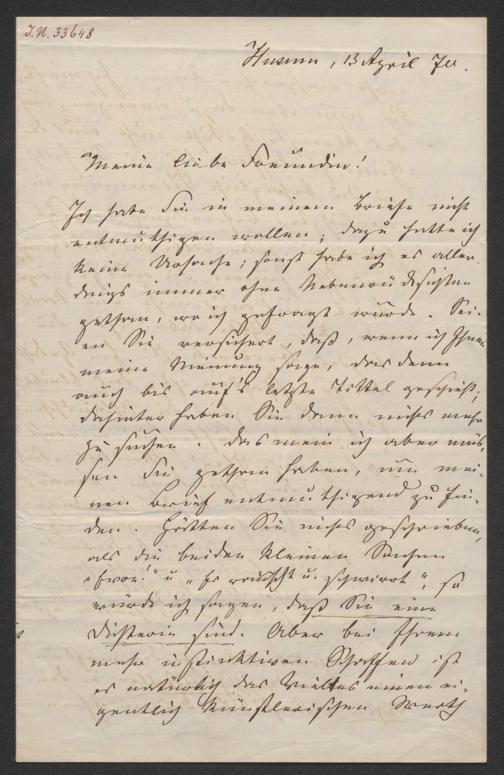 J.N. 33648
Husum, 13 April 70.
Meine liebe Freundin!
Ich habe Sie in meinem Briefe nicht
entmuthigen wollen; dazu hatte ich
keine Ursache; sonst habe ich es aller-
dings immer ohne Nebenrücksichten
gethan, wo ich gefragt wurde. Sei-
en Sie versichert, daß, wenn ich Ihnen
meine Meinung sage, das denn
auch bis auf's letzte Tittel geschieht;
dahinter haben Sie dann nichts mehr
zu suchen. Das mein ich aber müs-
sen Sie gethan haben, um mei-
nen Brief entmuthigend zu fin-
den. Hätten Sie nichts geschrieben,
als die beiden kleinen Sachen
u "Es rauscht u. schwirrt", so
würde ich sagen, daß Sie eine
Dichterin sind. Aber bei Ihrem
mehr instinktiven Schaffen ist
es natürlich das Vieles einen ei-
gentlich künstlerischen Werth